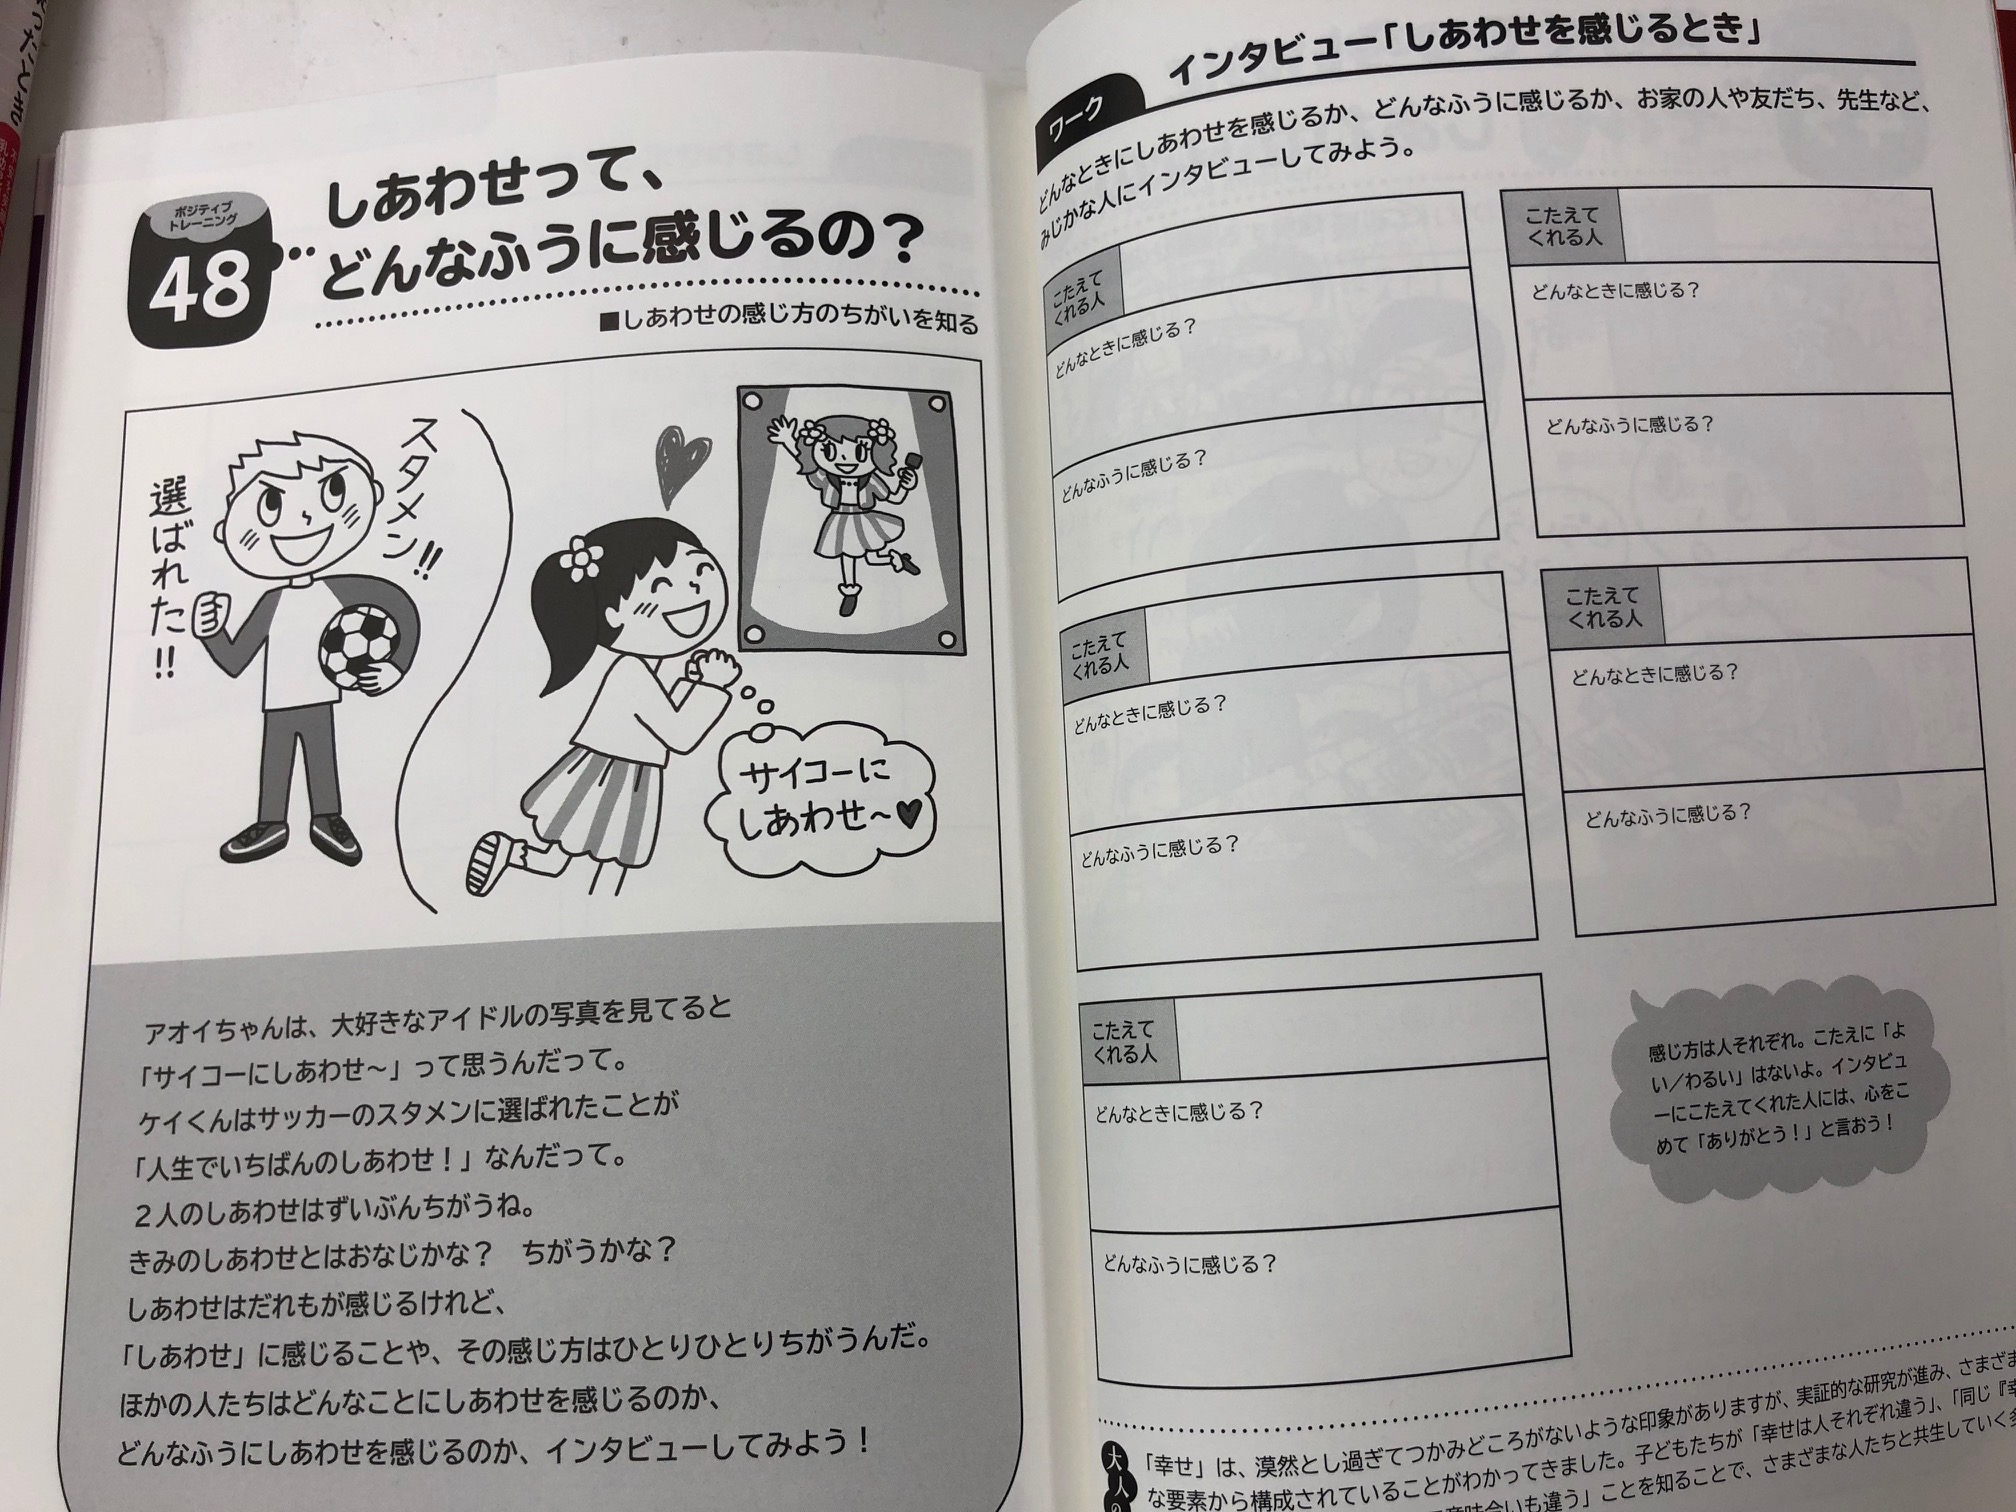 ポジティブ
トレーニング
48
しあわせって、
どんなふうに感じるの？
■しあわせの感じ方のちがいを知る
スタメン!!
選ばれた!!
サイコーに
しあわせ〜♥
アオイちゃんは、大好きなアイドルの写真を見てると
「サイコーにしあわせ〜」って思うんだって。
ケイくんはサッカーのスタメンに選ばれたことが
「人生でいちばんのしあわせ！」なんだって。
2人のしあわせはずいぶんちがうね。
きみのしあわせとはおなじかな？　ちがうかな？
しあわせはだれもが感じるけれど、
「しあわせ」に感じることや、その感じ方はひとりひとりちがうんだ。
ほかの人たちはどんなことにしあわせを感じるのか、
どんなふうにしあわせを感じるのか、インタビューしてみよう！
ワーク
インタビュー「しあわせを感じるとき」
どんなときにしあわせを感じるか、どんなふうに感じるか、お家の人や友だち、先生など、
みじかな人にインタビューしてみよう。
こたえて
くれる人
どんなときに感じる？
どんなふうに感じる？
こたえて
くれる人
どんなときに感じる？
どんなふうに感じる？
こたえて
くれる人
どんなときに感じる？
どんなふうに感じる？
こたえて
くれる人
どんなときに感じる？
どんなふうに感じる？
こたえて
くれる人
どんなときに感じる？
どんなふうに感じる？
感じ方は人それぞれ。こたえに「よ
い／わるい」はないよ。インタビュ
ーにこたえてくれた人には、心をこ
めて「ありがとう！」と言おう！
大人の
「幸せ」は、漠然とし過ぎてつかみどころがないような印象がありますが、実証的な研究が進み、さまざま
な要素から構成されていることがわかってきました。子どもたちが「幸せは人それぞれ違う」、「同じ『幸
意味合いも違う」ことを知ることで、さまざまな人たちと共生していく